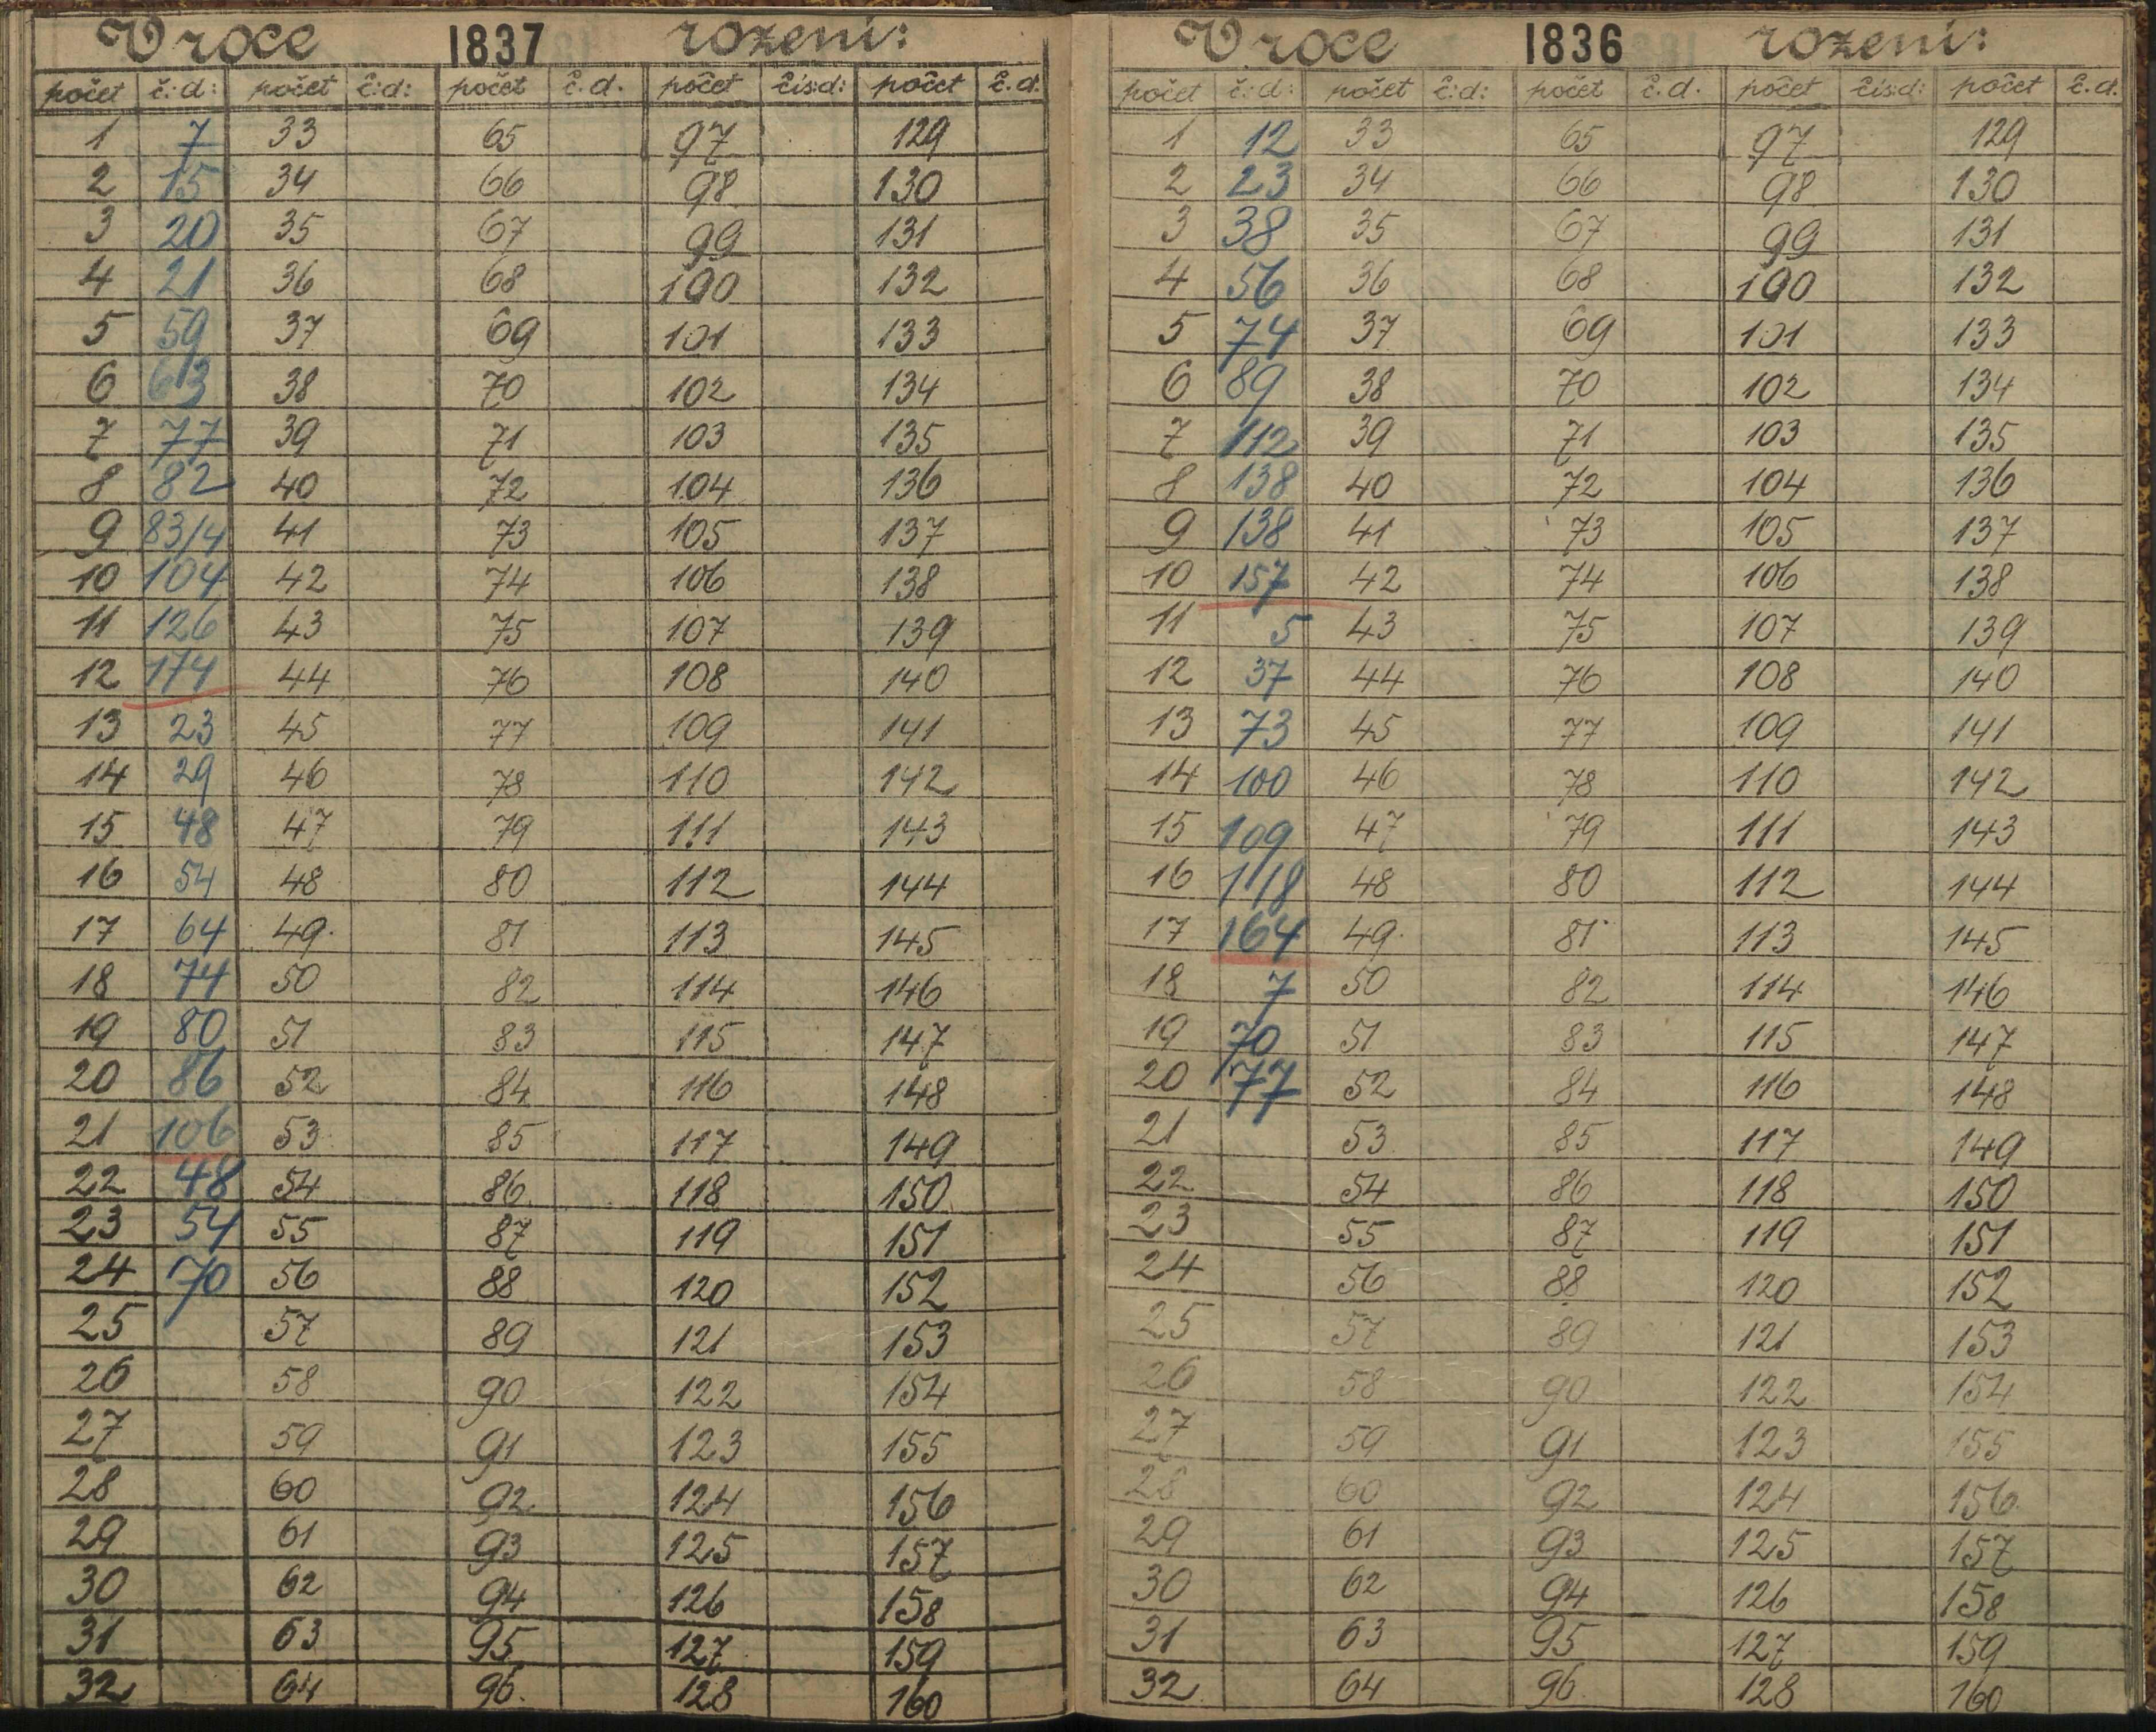 V roce 1837 rozeni:
počet č:d: počet č:d: počet č.d. počet čís:d: počet č.d.
1 7 33 65 97 129
2 15 34 66 98 130
3 20 35 67 99 131
4 21 36 68 100 132
5 59 37 69 101 133
6 63 38 70 102 134
7 77 39 71 103 135
8 82 40 72 104 136
9 83/4 41 73 105 137
10 104 42 74 106 138
11 126 43 75 107 139
12 174 44 76 108 140
13 23 45 77 109 141
14 29 46 78 110 142
15 48 47 79 111 143
16 54 48 80 112 144
17 64 49 81 113 145
18 74 50 82 114 146
19 80 51 83 115 147
20 86 52 84 116 148
21 106 53 85 117 149
22 48 54 86 118 150
23 54 55 87 119 151
24 70 56 88 120 152
25 57 89 121 153
26 58 90 122 154
27 59 91 123 155
28 60 92 124 156
29 61 93 125 157
30 62 94 126 158
31 63 95 127 159
32 64 96 128 160
V roce 1836 rozeni:
počet č:d: počet č:d: počet č.d. počet čís:d: počet č.d.
1 12 33 65 97 129
2 23 34 66 98 130
3 38 35 67 99 131
4 56 36 68 100 132
5 74 37 69 101 133
6 89 38 70 102 134
7 112 39 71 103 135
8 138 40 72 104 136
9 138 41 73 105 137
10 157 42 74 106 138
11 5 43 75 107 139
12 37 44 76 108 140
13 73 45 77 109 141
14 100 46 78 110 142
15 109 47 79 111 143
16 118 48 80 112 144
17 164 49 81 113 145
18 7 50 82 114 146
19 70 51 83 115 147
20 77 52 84 116 148
21 53 85 117 149
22 54 86 118 150
23 55 87 119 151
24 56 88 120 152
25 57 89 121 153
26 58 90 122 154
27 59 91 123 155
28 60 92 124 156
29 61 93 125 157
30 62 94 126 158
31 63 95 127 159
32 64 96 128 160